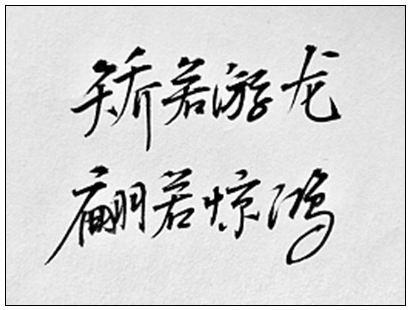 矫若游龙
翩若惊鸿